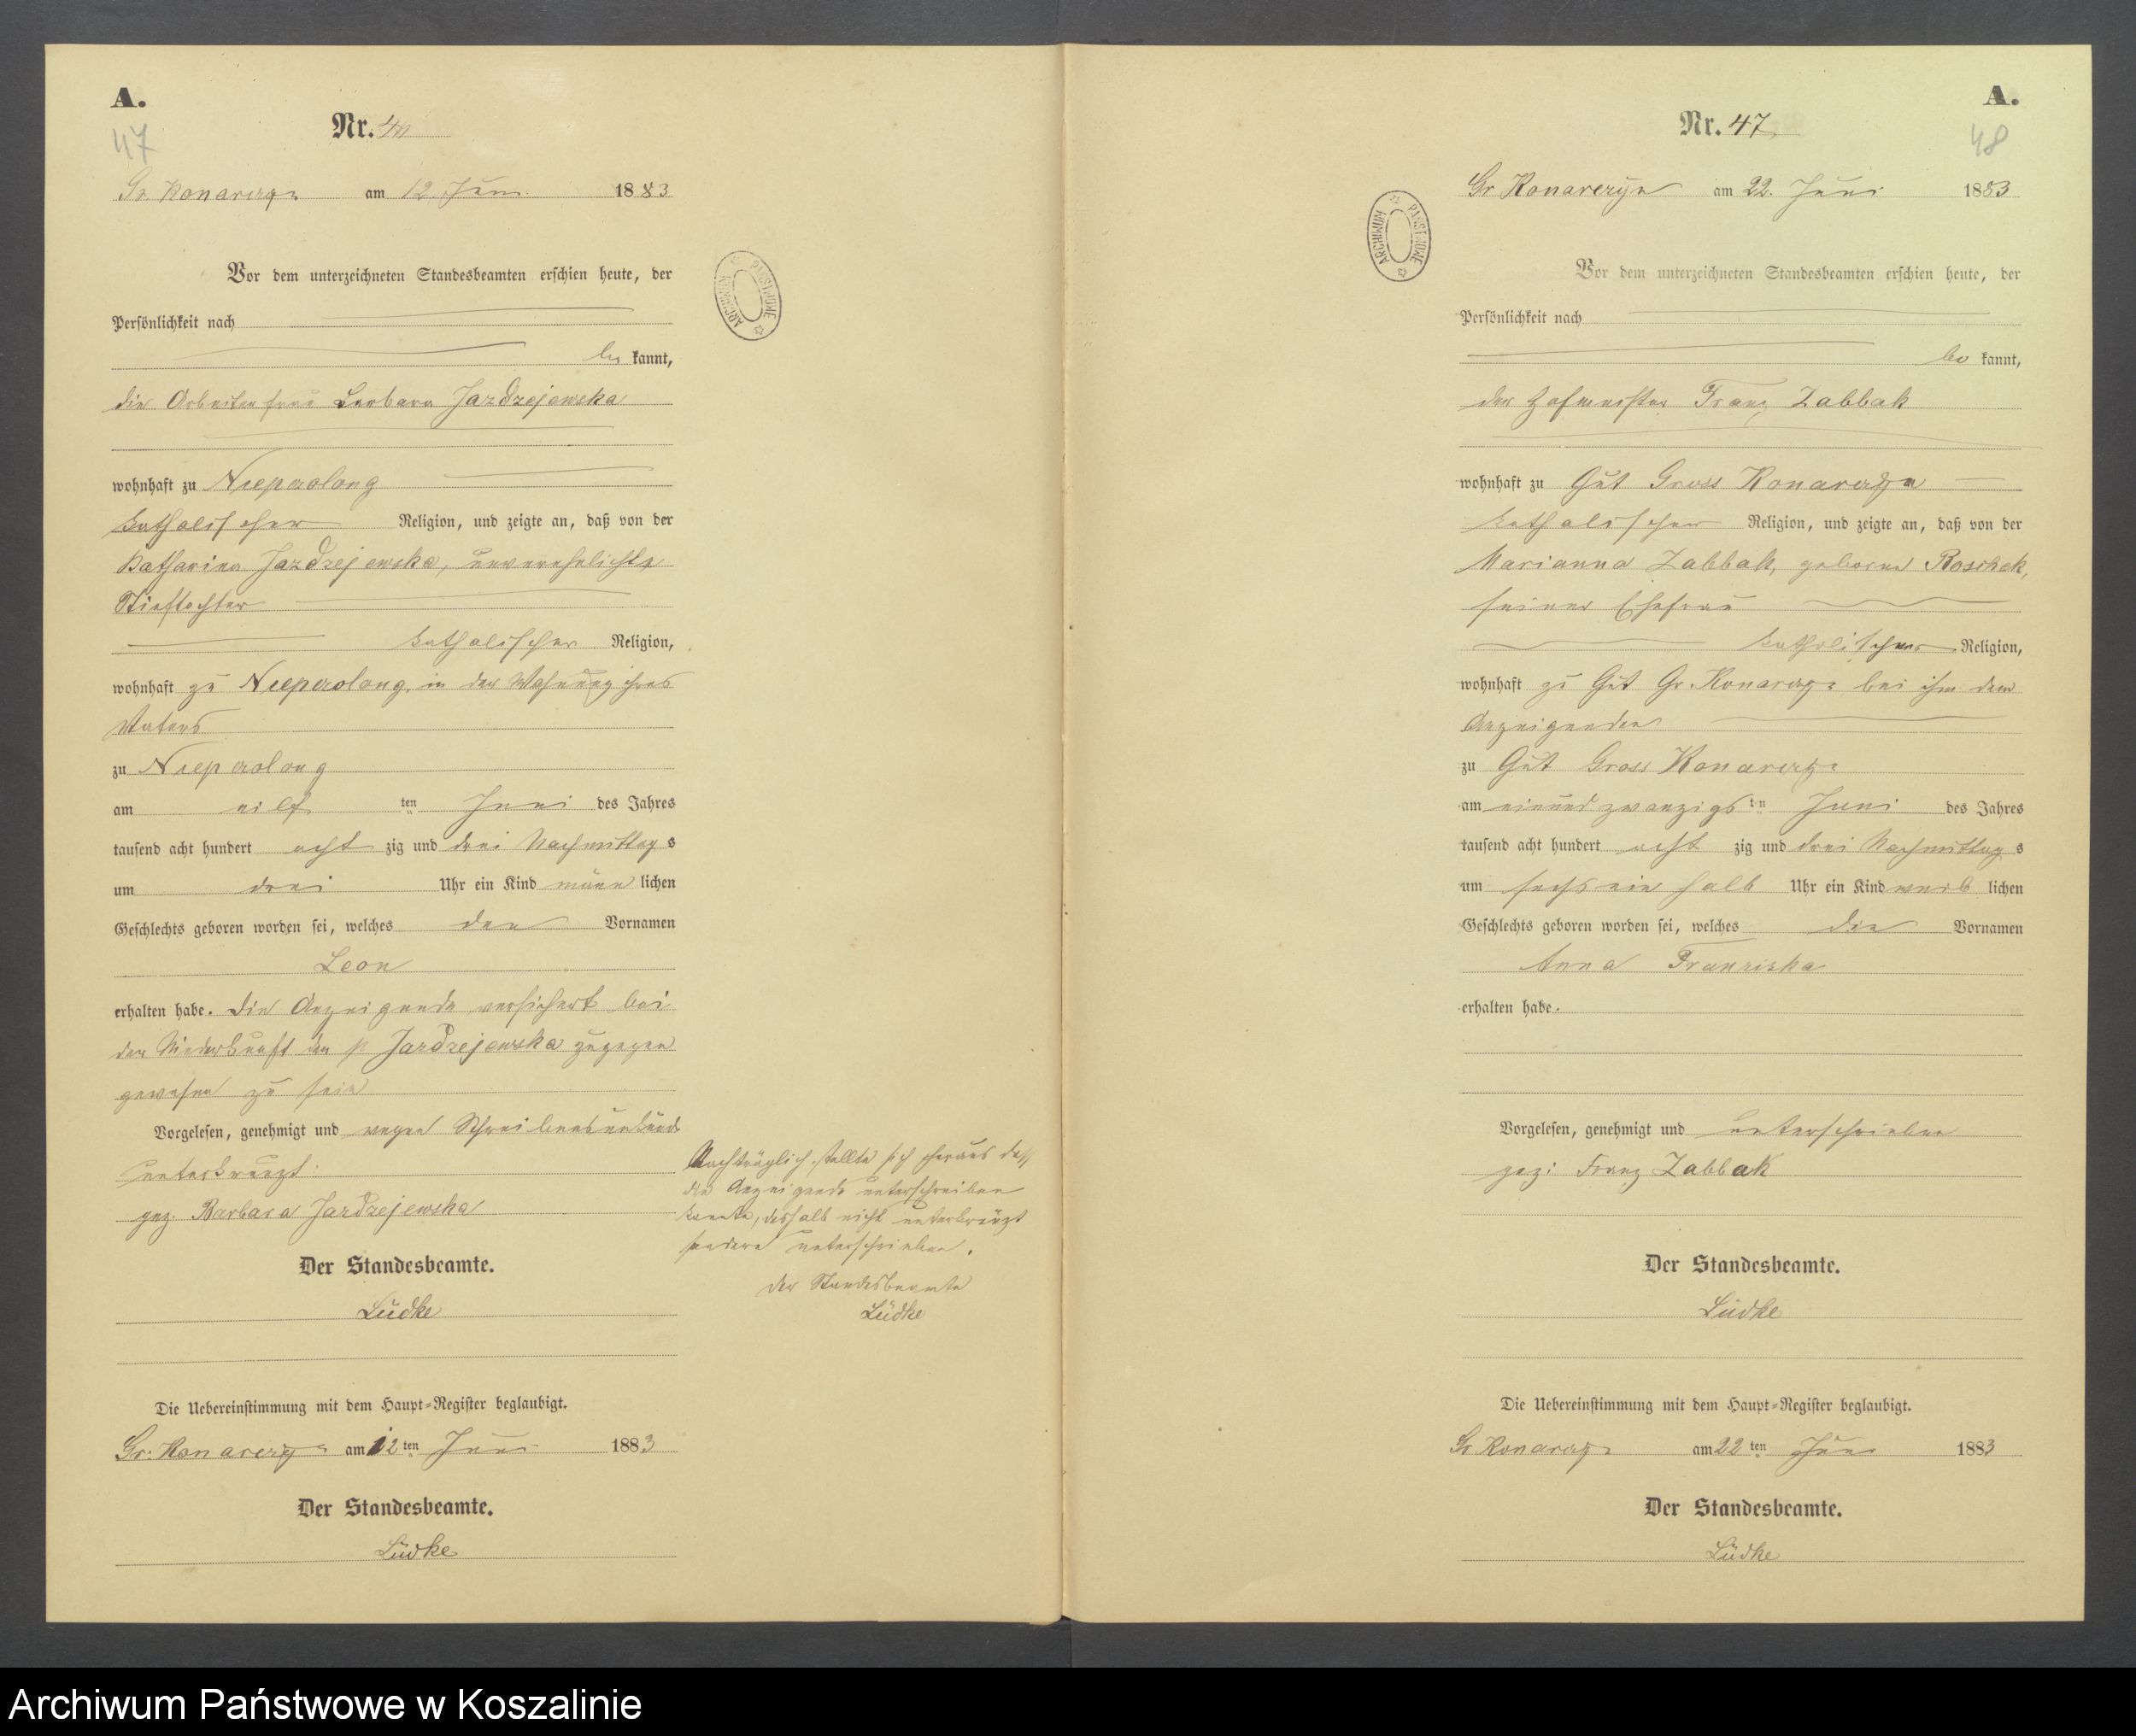 A.
47
Nr.
Gr. Konarczyn am 12 Juni 1883
Vor dem unterzeichneten Standesbeamten erschien heute, der
Persönlichkeit nach
be kannt,
die Arbeiterfrau Barbara Jazdzejewska
wohnhaft zu Niepszolong
katholischer Religion, und zeigte an, daß von der
Katharina Jazdzejewska, unverehelichte
Stieftochter
katholischer Religion,
wohnhaft zu Niepszolong, in der Wohnung ihres
Vaters
zu Niepszolong
am eilf ten Juni des Jahres
tausend acht hundert acht zig und drei Nachmittag s
um drei Uhr ein Kind männ lichen
Geschlechts geboren worden sei, welches den Vornamen
Leon
erhalten habe. Die Anzeigende versichert bei
der Niederkunft der p Jazdzejewska zugegen
gewesen zu sein
Vorgelesen, genehmigt und wegen Schreibensunkunde
unterkreuzt:
gez. Barbara Jazdzejewska
Der Standesbeamte.
Lüdke
Die Uebereinstimmung mit dem Haupt-Register beglaubigt.
Gr. Konarczyn am 12 ten Juni 1883
Der Standesbeamte.
Lüdke
Nachträglich stellte sich heraus daß
die Anzeigende unterschreiben
konnte, deshalb nicht unterkreuzt
sondern unterschrieben.
Der Standesbeamte
Lüdke
ARCHIWUM PAŃSTWOWE
A.
48
Nr. 47
Gr Konarczyn am 22. Juni 1883
ARCHIWUM PAŃSTWOWE
Vor dem unterzeichneten Standesbeamten erschien heute, der
Persönlichkeit nach
be kannt,
der Hofmeister Franz Zabbak
wohnhaft zu Gut Gross Konarczyn
katholischer Religion, und zeigte an, daß von der
Marianna Zabbak, geborene Roschek,
seiner Ehefrau
katholischer Religion,
wohnhaft zu Gut Gr. Konarczyn bei ihm dem
Anzeigenden
zu Gut Gross Konarczyn
am einundzwanzigs ten Juni des Jahres
tausend acht hundert acht zig und drei Nachmittag s
um sechs ein halb Uhr ein Kind weib lichen
Geschlechts geboren worden sei, welches die Vornamen
Anna Franziska
erhalten habe.
Vorgelesen, genehmigt und unterschrieben
gez: Franz Zabbak
Der Standesbeamte.
Lüdke
Die Uebereinstimmung mit dem Haupt-Register beglaubigt.
Gr Konarczyn am 22 ten Juni 1883
Der Standesbeamte.
Lüdke
Archiwum Państwowe w Koszalinie